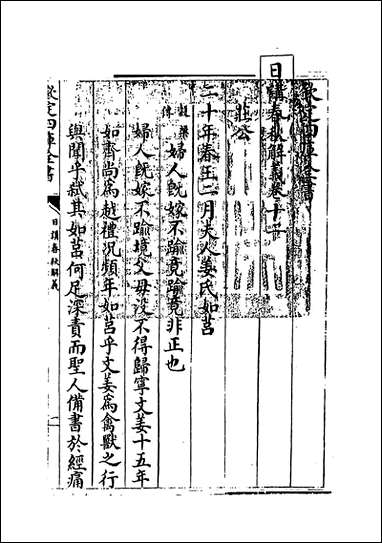 欽定四庫全書
日講春秋解義卷十一
莊公
二十年春王二月夫人姜氏如莒
穀梁傳 婦人既嫁不踰竟踰竟非正也
婦人既嫁不踰境父母没不得歸寧文姜十五年
如齊尚為越禮况頻年如莒乎文姜為禽獸之行
與聞乎弑其如莒何足深責而聖人備書於經痛
欽定四庫全書
日講春秋解義